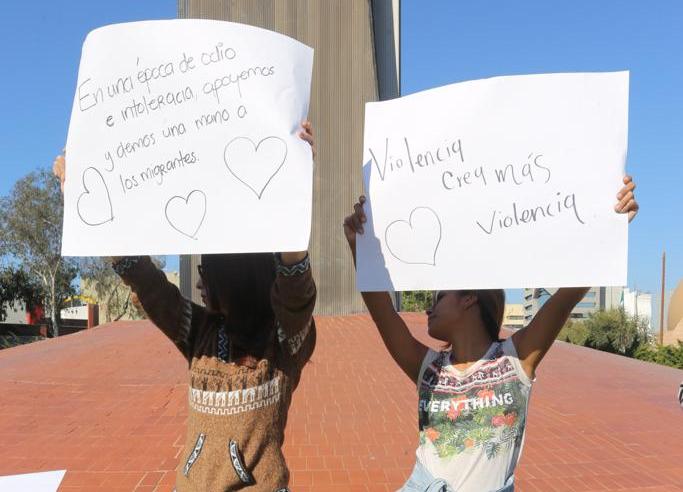 En una época de odio
e intoleracia, apoyemos
y demos una mano a
los migrantes.
Violencia
crea más
violencia
EVERYTHING